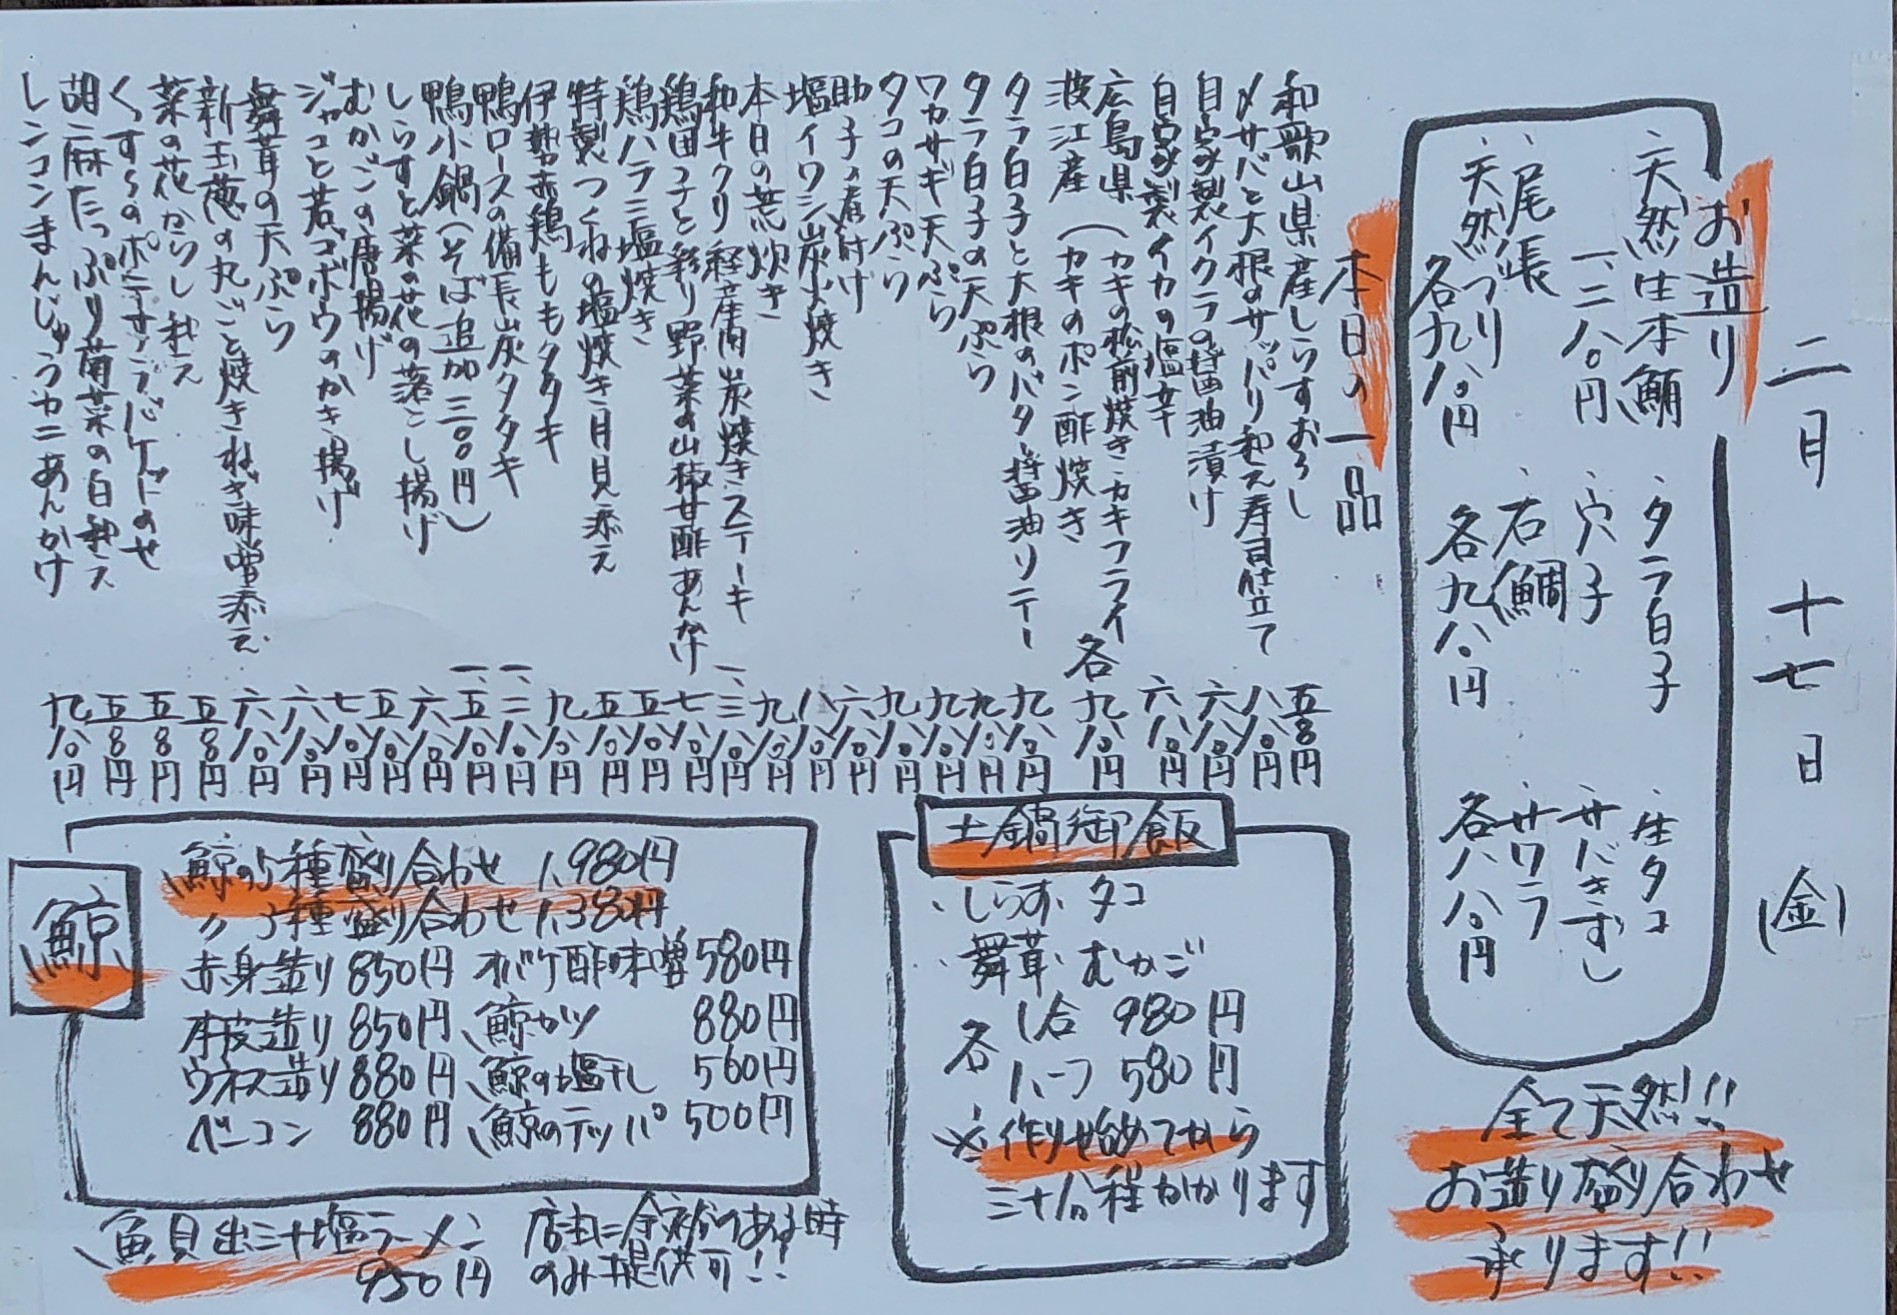 二月十七日(金)
お造り
・天然生本鮪 一、二八〇円
・尾張天然ブリ 各九八〇円
・タラ白子
・穴子
・石鯛 各九八〇円
・生タコ
・サバきずし
・サワラ 各八八〇円
全て天然!!
お造り盛り合わせ
承ります!!
本日の一品
和歌山県産しらすおろし 五八〇円
〆サバと大根のサッパリ和え寿司仕立て 八八〇円
自家製イクラの醤油漬け 六八〇円
自家製イカの塩辛 六八〇円
広島県(カキの松前焼き・カキフライ
産(カキのポン酢焼き 各九八〇円
タラ白子と大根のバター醤油ソテー 九八〇円
タラ白子の天ぷら 九八〇円
ワカサギ天ぷら 九八〇円
タコの天ぷら 九八〇円
助子の煮付け 六八〇円
塩イワシ炭火焼き 八八〇円
本日の荒炊き 九八〇円
和牛クリ 経産肉炭焼きステーキ 一、三八〇円
鶏団子と彩り野菜の山椒甘酢あんかけ 七八〇円
鶏ハラミ塩焼き 五八〇円
特製つくねの塩焼き月見添え 五八〇円
伊勢赤鶏ももタタキ 九八〇円
鴨ロースの備長炭タタキ 一、二八〇円
鴨小鍋(そば追加三〇〇円) 一、五八〇円
しらすと菜の花の落とし揚げ 六八〇円
むかごの唐揚げ 五八〇円
ジャコと若ゴボウのかき揚げ 七八〇円
舞茸の天ぷら 六八〇円
新玉葱の丸ごと焼きねぎ味噌添え 六八〇円
菜の花からし和え 五八〇円
くずしのポテサラバケットのせ 五八〇円
胡麻たっぷり菊菜の白和え 五八〇円
レンコンまんじゅうカニあんかけ 九八〇円
土鍋御飯
・しらす・タコ
・舞茸・むかご
各 1合 980円
ハーフ 580円
※作り始めてから
三十分程かかります
鯨
、鯨の5種盛り合わせ 1,980円
〃 3種盛り合わせ 1,380円
赤身造り 850円 オバケ酢味噌 580円
本皮造り 850円、鯨カツ 880円
ウネス造り 880円、鯨の塩干し 560円
ベーコン 880円、鯨のテッパ 500円
、魚貝出汁塩ラーメン
950円
店主に余裕のある時
のみ提供可!!